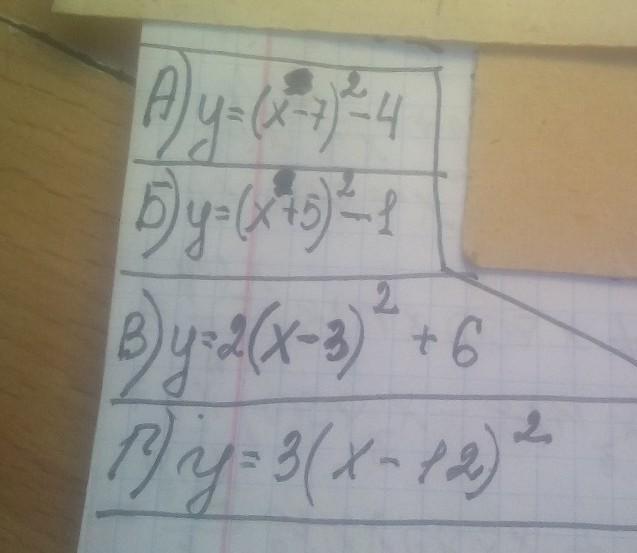 А) y=(x-7)²-4
Б) y=(x+5)²-1
В) y=2(x-3)²+6
Г) y=3(x-12)²